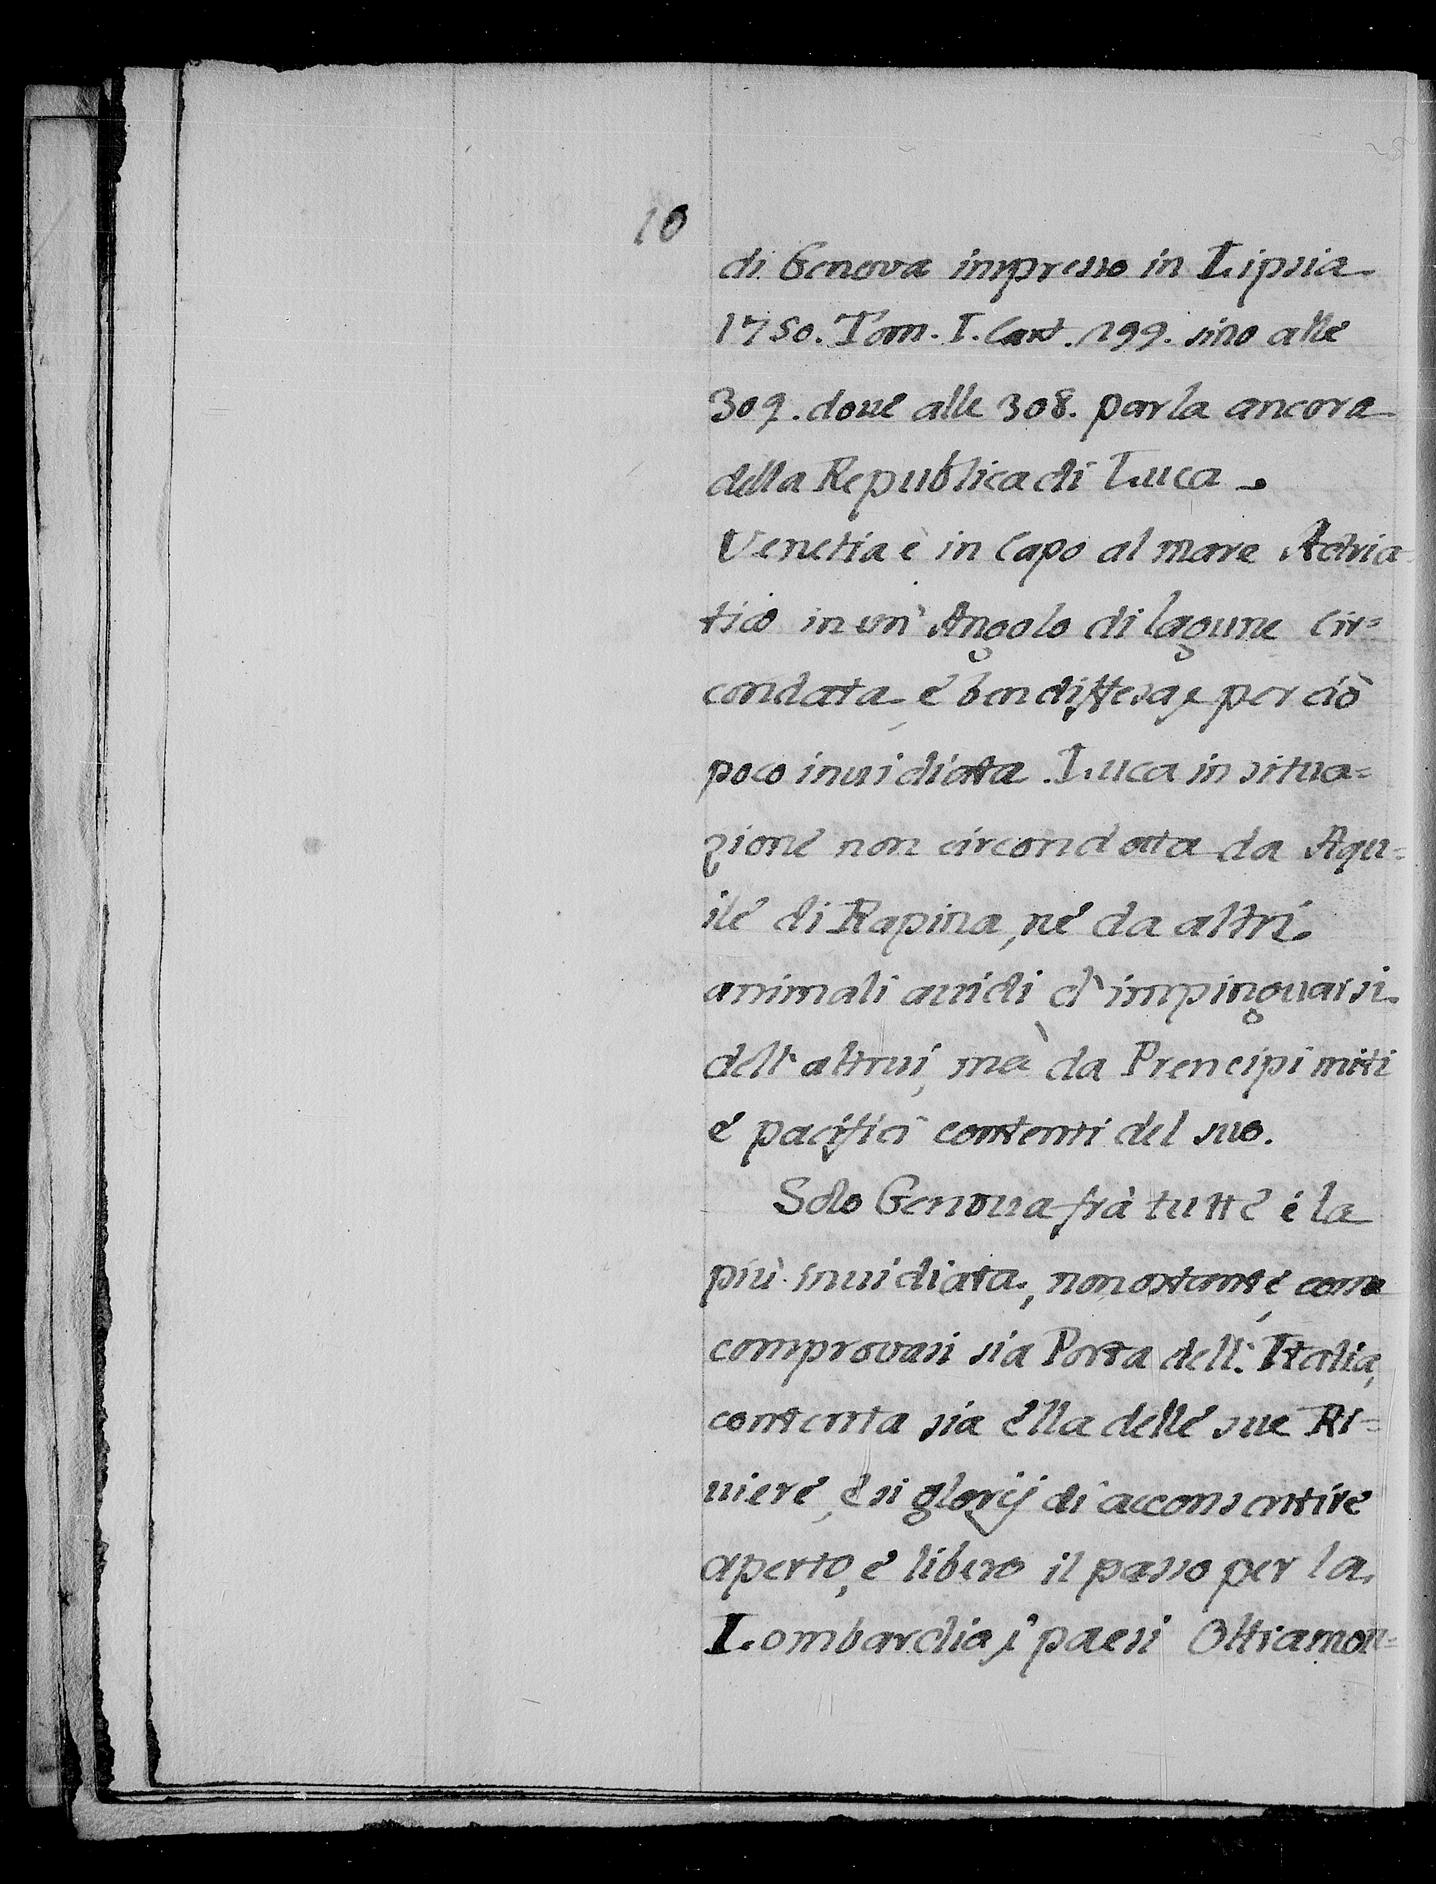 10
di Genova impresso in Lipsia
1750. Tom. I. Cart. 299. sino alle
309. doue alle 308. parla ancora
della Republica di Luca.
Venetia è in Capo al mare Adria=
tico in un' Angolo di lagune cir=
condata, e ben diffesa, e per ciò
poco inuidiata. Luca in situa=
zione non circondata da Aqu=
ile di Rapina, ne da altri
animali auidi d'impinguarsi
dell'altrui, mà da Prencipi miti
e pacifici contenti del suo.
Solo Genoua frà tutte è la
più inuidiata, non ostante, come
comprovasi sia Porta dell'Italia,
contenta sia ella delle sue Ri=
uiere, e si glorij di acconsentire
aperto, e libero il passo per la
Lombardia, i paesi Oltramon=